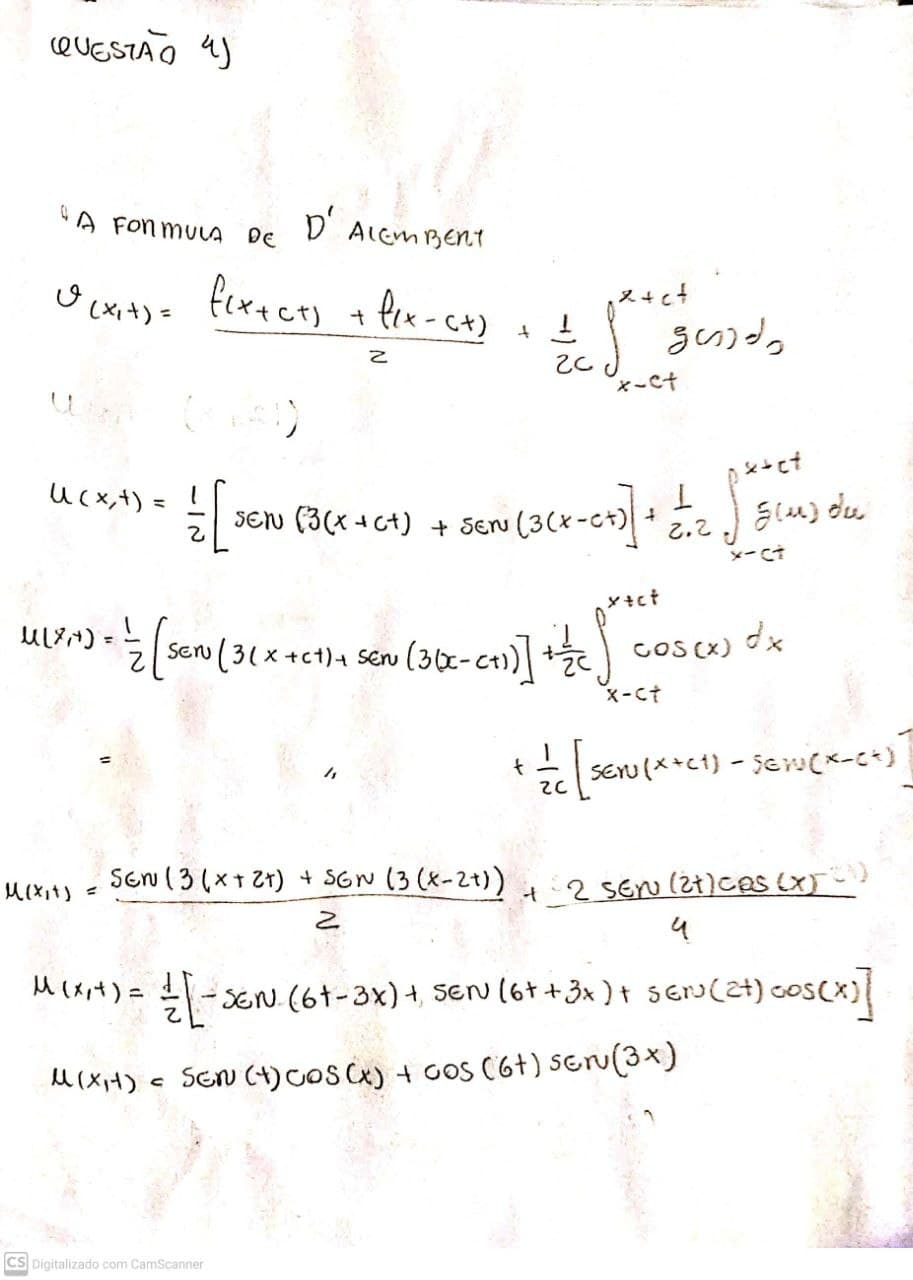 QUESTÃO 4)
"A FORMULA DE D' ALEMBERT
U(x,t) = f(x+ct) + f(x-ct) / 2 + 1/2c ∫_{x-ct}^{x+ct} g(s) ds
u(x,t) = 1/2 [ sen (3(x+ct) + sen (3(x-ct) ] + 1/2.2 ∫_{x-ct}^{x+ct} g(u) du
u(x,t) = 1/2 [ sen (3(x+ct) + sen (3(x-ct)) ] + 1/2c ∫_{x-ct}^{x+ct} cos(x) dx
= " + 1/2c [ sen(x+ct) - sen(x-ct) ]
u(x,t) = sen (3(x+2t) + sen (3(x-2t)) / 2 + 2 sen (2t) cos (x) / 4
u(x,t) = 1/2 [ -sen (6t-3x) + sen (6t+3x) + sen(2t) cos(x) ]
u(x,t) = sen (t) cos (x) + cos (6t) sen(3x)
CS Digitalizado com CamScanner